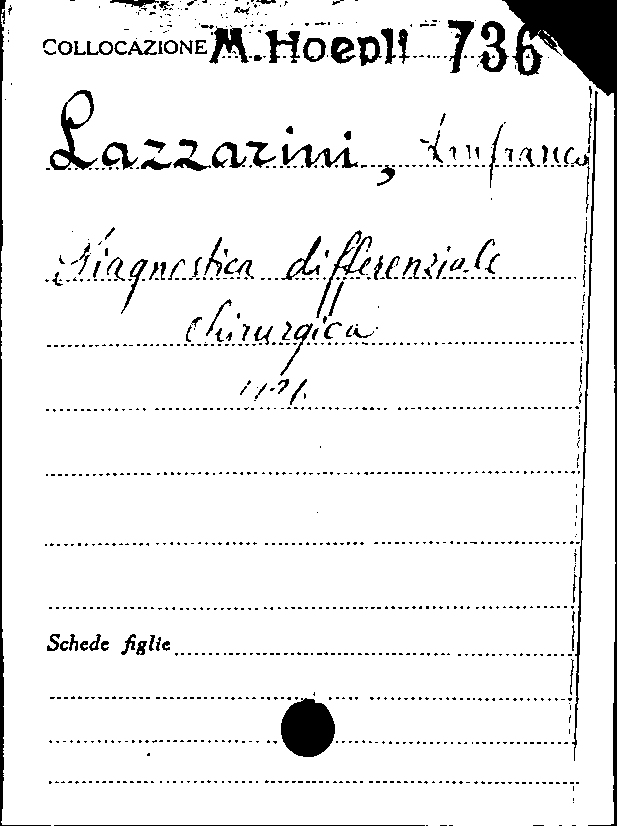 COLLOCAZIONE M. Hoepli 736
Lazzarini, Lanfranco
Diagnostica differenziale
chirurgica
Schede figlie